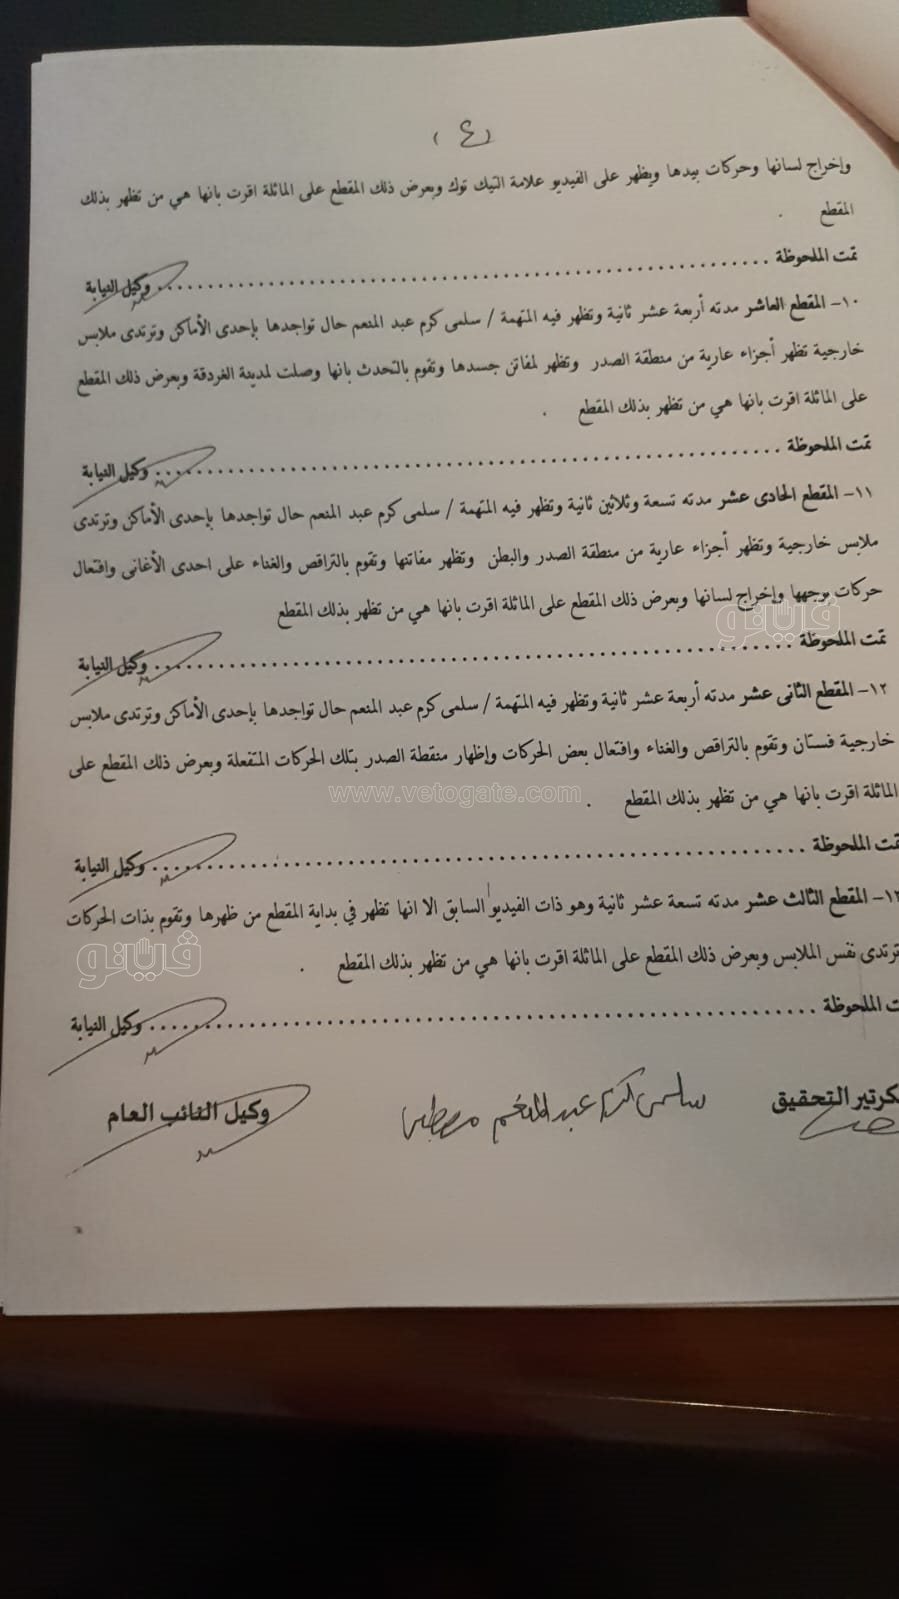 (٤)
وإخراج لسانها وحركات بيدها ويظهر على الفيديو علامة التيك توك وبعرض ذلك المقطع على الماثلة اقرت بانها هي من تظهر بذلك
المقطع .
تمت الملحوظة ........................................ وكيل النيابة
١٠- المقطع العاشر مدته أربعة عشر ثانية وتظهر فيه المتهمة / سلمى كرم عبد المنعم حال تواجدها بإحدى الأماكن وترتدى ملابس
خارجية تظهر أجزاء عارية من منطقة الصدر وتظهر لمفاتن جسدها وتقوم بالتحدث بانها وصلت لمدينة الغردقة وبعرض ذلك المقطع
على الماثلة اقرت بانها هي من تظهر بذلك المقطع .
تمت الملحوظة ........................................ وكيل النيابة
١١- المقطع الحادى عشر مدته تسعة وثلاثين ثانية وتظهر فيه المتهمة / سلمى كرم عبد المنعم حال تواجدها بإحدى الأماكن وترتدى
ملابس خارجية وتظهر أجزاء عارية من منطقة الصدر والبطن وتظهر مفاتنها وتقوم بالتراقص والغناء على احدى الأغانى وافتعال
حركات بوجهها وإخراج لسانها وبعرض ذلك المقطع على الماثلة اقرت بانها هي من تظهر بذلك المقطع
ڤيتو
تمت الملحوظة ........................................ وكيل النيابة
١٢- المقطع الثانى عشر مدته أربعة عشر ثانية وتظهر فيه المتهمة / سلمى كرم عبد المنعم حال تواجدها بإحدى الأماكن وترتدى ملابس
خارجية فستان وتقوم بالتراقص والغناء وافتعال بعض الحركات وإظهار منقطة الصدر بتلك الحركات المتفعلة وبعرض ذلك المقطع على
الماثلة اقرت بانها هي من تظهر بذلك المقطع .
www.vetogate.com
تمت الملحوظة ........................................ وكيل النيابة
١٣- المقطع الثالث عشر مدته تسعة عشر ثانية وهو ذات الفيديو السابق الا انها تظهر في بداية المقطع من ظهرها وتقوم بذات الحركات
وترتدى نفس الملابس وبعرض ذلك المقطع على الماثلة اقرت بانها هي من تظهر بذلك المقطع .
ڤيتو
تمت الملحوظة ........................................ وكيل النيابة
سكرتير التحقيق
سلمى كرم عبد المنعم مصطفى
وكيل النائب العام